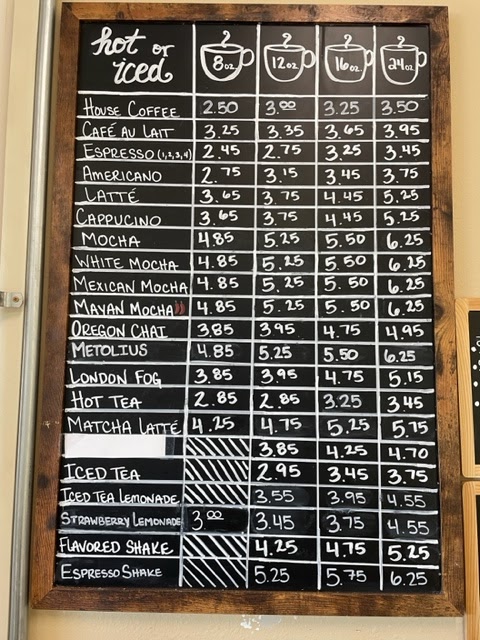 hot or
iced
8oz. 12oz. 16oz. 24oz.
HOUSE COFFEE 2.50 3.00 3.25 3.50
CAFÉ AU LAIT 3.25 3.35 3.65 3.95
ESPRESSO (1,2,3,4) 2.45 2.75 3.25 3.45
AMERICANO 2.75 3.15 3.45 3.75
LATTÉ 3.65 3.75 4.45 5.25
CAPPUCINO 3.65 3.75 4.45 5.25
MOCHA 4.85 5.25 5.50 6.25
WHITE MOCHA 4.85 5.25 5.50 6.25
MEXICAN MOCHA 4.85 5.25 5.50 6.25
MAYAN MOCHA 4.85 5.25 5.50 6.25
OREGON CHAI 3.85 3.95 4.75 4.95
METOLIUS 4.85 5.25 5.50 6.25
LONDON FOG 3.85 3.95 4.75 5.15
HOT TEA 2.85 2.85 3.25 3.45
MATCHA LATTÉ 4.25 4.75 5.25 5.75
3.85 4.25 4.70
ICED TEA 2.95 3.45 3.75
ICED TEA LEMONADE 3.55 3.95 4.55
STRAWBERRY LEMONADE 3.00 3.45 3.75 4.55
FLAVORED SHAKE 4.25 4.75 5.25
ESPRESSO SHAKE 5.25 5.75 6.25